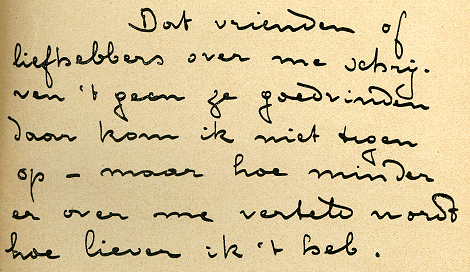 Dat vrienden of
liefhebbers over me schrij-
ven 't geen ze goedvinden
daar kom ik niet tegen
op – maar hoe minder
er over me verteld wordt
hoe liever ik 't heb.